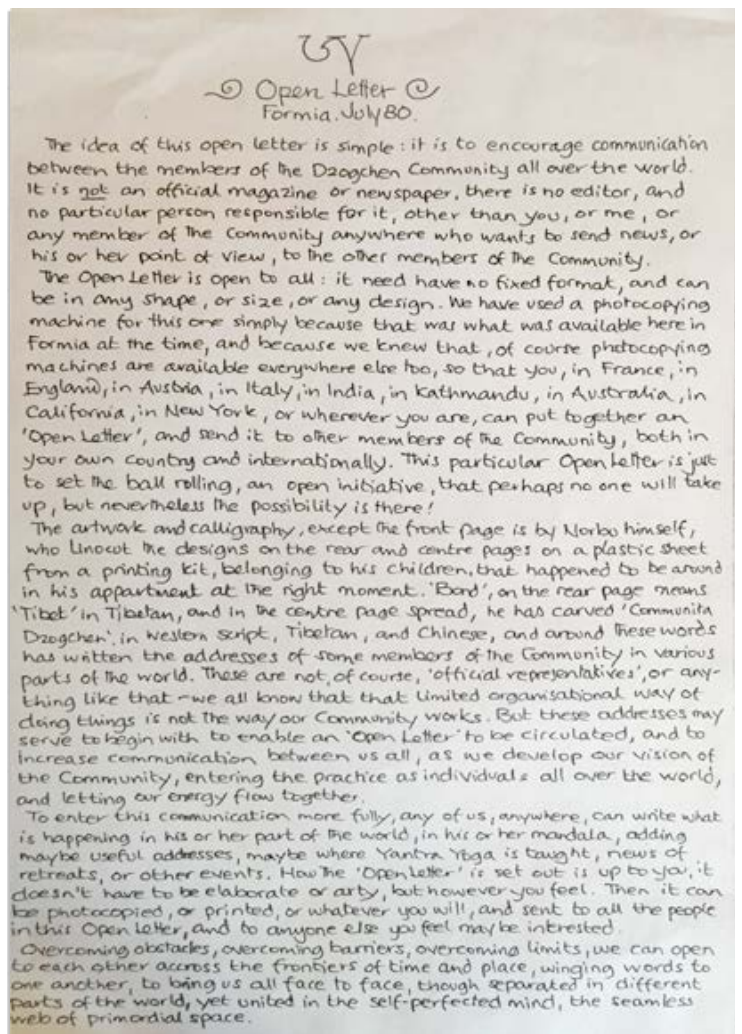 Open Letter
Formia. July 80.
The idea of this open letter is simple: it is to encourage communication
between the members of the Dzogchen Community all over the world.
It is not an official magazine or newspaper, there is no editor, and
no particular person responsible for it, other than you, or me, or
any member of the Community anywhere who wants to send news, or
his or her point of view, to the other members of the Community.
The Open Letter is open to all: it need have no fixed format, and can
be in any shape, or size, or any design. We have used a photocopying
machine for this one simply because that was what was available here in
Formia at the time, and because we knew that, of course photocopying
machines are available everywhere else too, so that you, in France, in
England, in Austria, in Italy, in India, in Kathmandu, in Australia, in
California, in New York, or wherever you are, can put together an
'Open Letter', and send it to other members of the Community, both in
your own country and internationally. This particular Open Letter is just
to set the ball rolling, an open initiative, that perhaps no one will take
up, but nevertheless the possibility is there!
The artwork and calligraphy, except the front page is by Norbu himself,
who linocut the designs on the rear and centre pages on a plastic sheet
from a printing kit, belonging to his children, that happened to be around
in his appartment at the right moment. 'Bord', on the rear page means
'Tibet' in Tibetan, and in the centre page spread, he has carved 'Communita
Dzogchen', in Western script, Tibetan, and Chinese, and around these words
has written the addresses of some members of the Community in various
parts of the world. These are not, of course, 'official representatives', or any-
thing like that - we all know that that limited organisational way of
doing things is not the way our Community works. But these addresses may
serve to begin with to enable an 'Open Letter' to be circulated, and to
increase communication between us all, as we develop our vision of
the Community, entering the practice as individuals all over the world,
and letting our energy flow together.
To enter this communication more fully, any of us, anywhere, can write what
is happening in his or her part of the world, in his or her mandala, adding
maybe useful addresses, maybe where Yantra Yoga is taught, news of
retreats, or other events. How the 'Open Letter' is set out is up to you, it
doesn't have to be elaborate or arty, but however you feel. Then it can
be photocopied, or printed, or whatever you will, and sent to all the people
in this Open Letter, and to anyone else you feel may be intrested.
Overcoming obstacles, overcoming barriers, overcoming limits, we can open
to each other accross the frontiers of time and place, winging words to
one another, to bring us all face to face, though separated in different
parts of the world, yet united in the self-perfected mind, the seamless
web of primordial space.